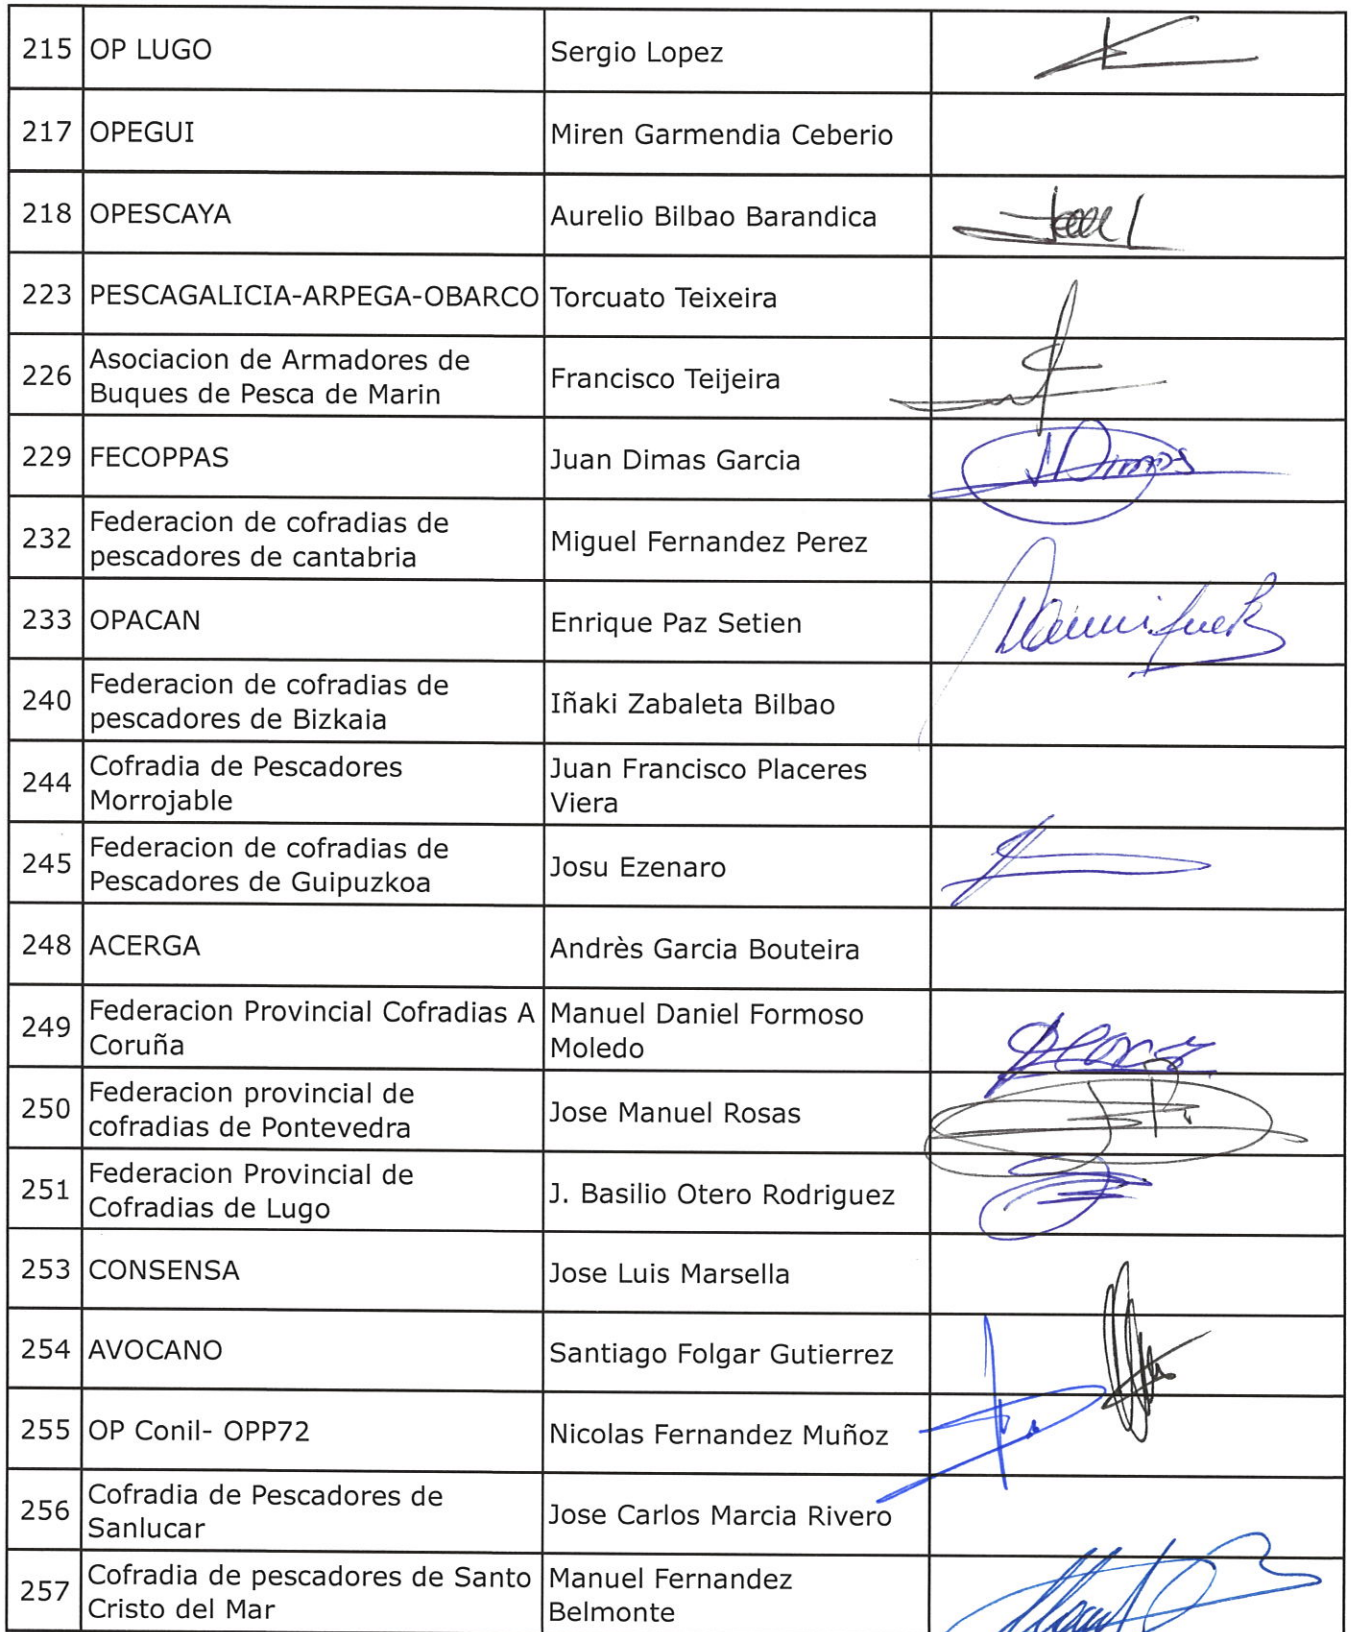 215 OP LUGO Sergio Lopez
217 OPEGUI Miren Garmendia Ceberio
218 OPESCAYA Aurelio Bilbao Barandica
223 PESCAGALICIA-ARPEGA-OBARCO Torcuato Teixeira
226 Asociacion de Armadores de
Buques de Pesca de Marin Francisco Teijeira
229 FECOPPAS Juan Dimas Garcia J Dimas
232 Federacion de cofradias de
pescadores de cantabria Miguel Fernandez Perez
233 OPACAN Enrique Paz Setien
240 Federacion de cofradias de
pescadores de Bizkaia Iñaki Zabaleta Bilbao
244 Cofradia de Pescadores
Morrojable Juan Francisco Placeres
Viera
245 Federacion de cofradias de
Pescadores de Guipuzkoa Josu Ezenaro
248 ACERGA Andrès Garcia Bouteira
249 Federacion Provincial Cofradias A
Coruña Manuel Daniel Formoso
Moledo
250 Federacion provincial de
cofradias de Pontevedra Jose Manuel Rosas
251 Federacion Provincial de
Cofradias de Lugo J. Basilio Otero Rodriguez
253 CONSENSA Jose Luis Marsella
254 AVOCANO Santiago Folgar Gutierrez
255 OP Conil- OPP72 Nicolas Fernandez Muñoz
256 Cofradia de Pescadores de
Sanlucar Jose Carlos Marcia Rivero
257 Cofradia de pescadores de Santo
Cristo del Mar Manuel Fernandez
Belmonte